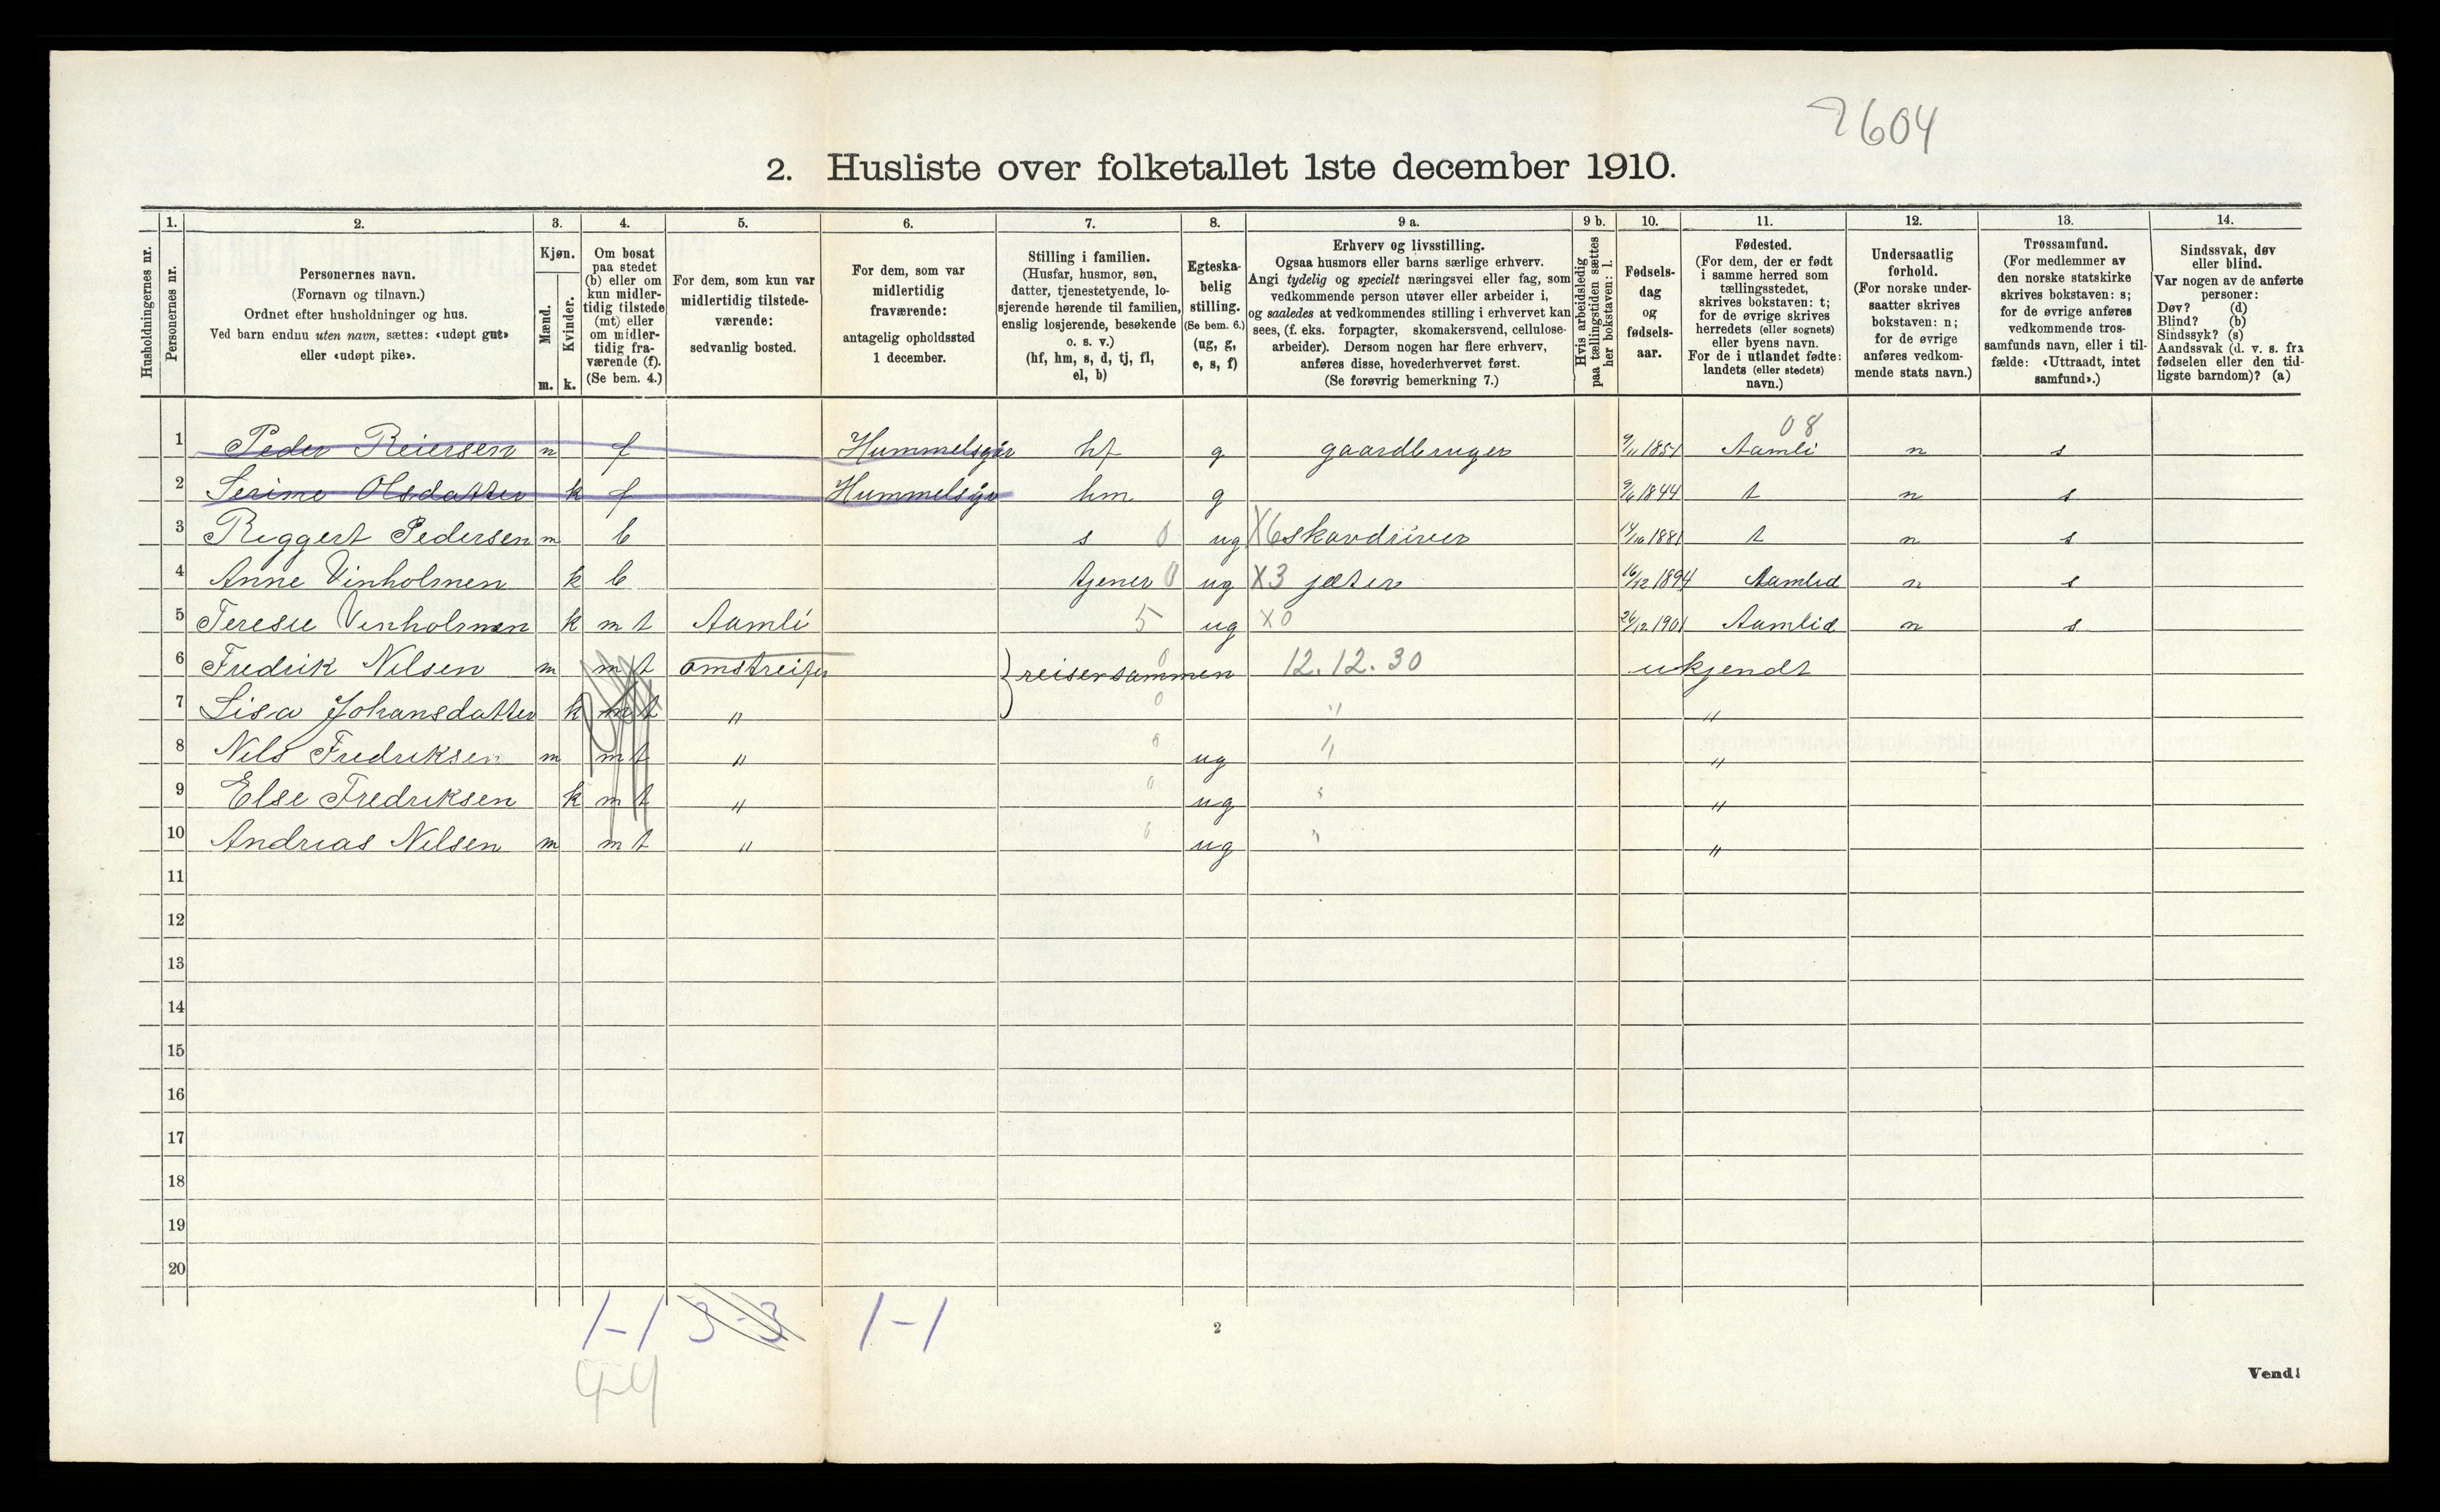 2604
2. Husliste over folketallet 1ste december 1910.
Husholdningernes nr.
1. Personernes nr.
2. Personernes navn. (Fornavn og tilnavn.) Ordnet efter husholdninger og hus. Ved barn endnu uten navn, sættes: «udøpt gut» eller «udøpt pike».
3. Kjøn. Mænd. m. Kvinder. k.
4. Om bosat paa stedet (b) eller om kun midlertidig tilstede (mt) eller om midlertidig fraværende (f). (Se bem. 4.)
5. For dem, som kun var midlertidig tilstedeværende: sedvanlig bosted.
6. For dem, som var midlertidig fraværende: antagelig opholdssted 1 december.
7. Stilling i familien. (Husfar, husmor, søn, datter, tjenestetyende, losjerende hørende til familien, enslig losjerende, besøkende o. s. v.) (hf, hm, s, d, tj, fl, el, b)
8. Egteskabelig stilling. (Se bem. 6.) (ug, g, e, s, f)
9 a. Erhverv og livsstilling. Ogsaa husmors eller barns særlige erhverv. Angi tydelig og specielt næringsvei eller fag, som vedkommende person utøver eller arbeider i, og saaledes at vedkommendes stilling i erhvervet kan sees, (f. eks. forpagter, skomakersvend, cellulosearbeider). Dersom nogen har flere erhverv, anføres disse, hovederhvervet først. (Se forøvrig bemerkning 7.)
9 b. Hvis arbeidsledig paa tællingstiden sættes her bokstaven: l.
10. Fødselsdag og fødselsaar.
11. Fødested. (For dem, der er født i samme herred som tællingsstedet, skrives bokstaven: t; for de øvrige skrives herredets (eller sognets) eller byens navn. For de i utlandet fødte: landets (eller stedets) navn.)
12. Undersaatlig forhold. (For norske undersaatter skrives bokstaven: n; for de øvrige anføres vedkommende stats navn.)
13. Trossamfund. (For medlemmer av den norske statskirke skrives bokstaven: s; for de øvrige anføres vedkommende trossamfunds navn, eller i tilfælde: «Uttraadt, intet samfund».)
14. Sindssvak, døv eller blind. Var nogen av de anførte personer: Døv? (d) Blind? (b) Sindssyk? (s) Aandssvak (d. v. s. fra fødselen eller den tidligste barndom)? (a)
08
1 Peder Reiersen m f hf g gaardbruger 9/11 1851 Aamli n s
2 Serine Olsdatter k f hm g 9/6 1844 t n s
3 Reggert Pedersen m b s 0 ug X6 skovdriver 14/10 1881 t n s
4 Anne Vinholmen k b tjener 0 ug X3 jæter 16/12 1894 Aamlid n s
5 Teresie Vinholmen k mt Aamli 5 ug X0 26/12 1901 Aamlid n s
6 Fredrik Nilsen m mt omstreifer } reiser sammen 0 12.12.30 ukjendt
7 Lisa Johansdatter k mt " 0 " "
8 Nils Fredriksen m mt " 0 ug " "
9 Else Fredriksen k mt " 0 ug " "
10 Andreas Nilsen m mt " 0 ug " "
11
12
13
14
15
16
17
18
19
20
1-1 3-3 1-1
2
4-4
Vend!